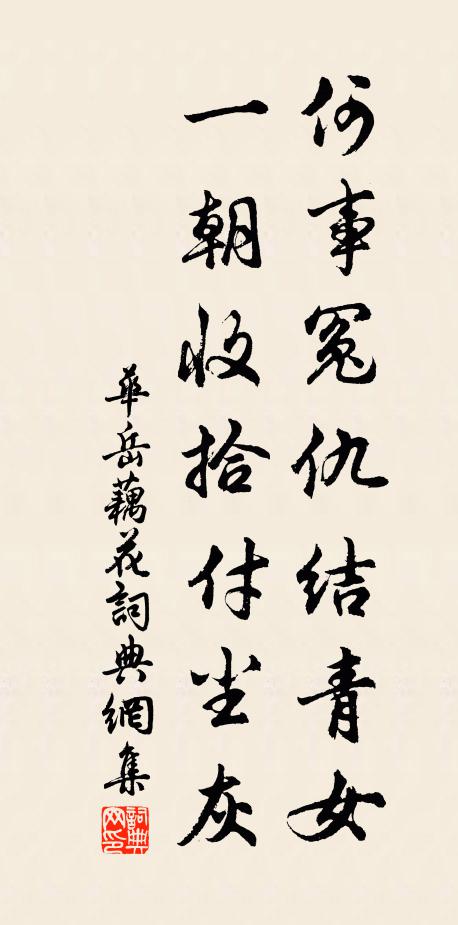 何事冤仇结青女
一朝收拾付尘灰
华岳藕花詞典網集
詞典网印